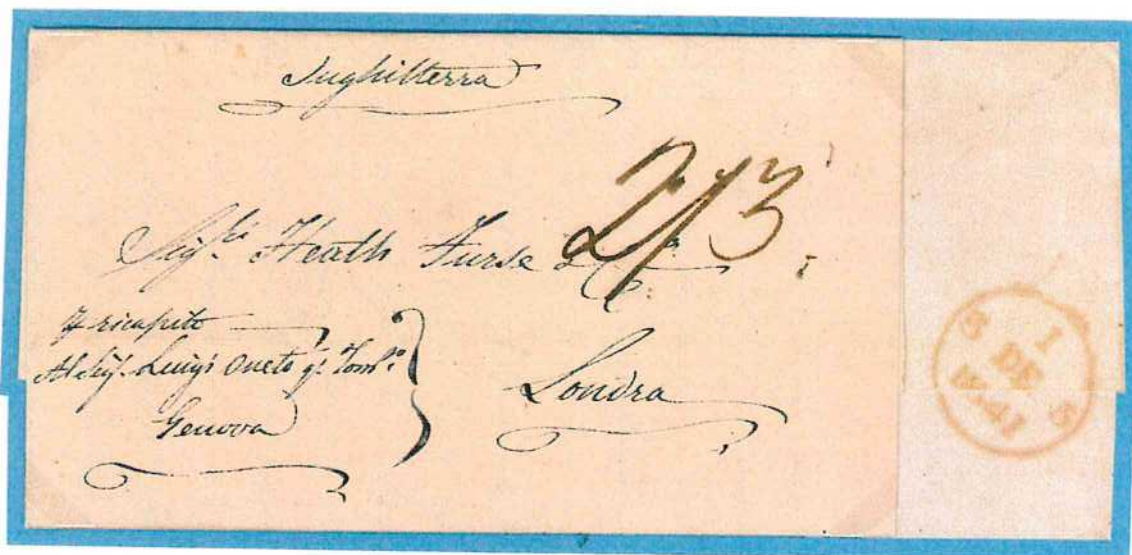 Inghilterra
2/3
Sigri Heath Furse & Co
ricapito
Al Sigr Luigi Oneto
Genova
Londra
1
DE
1841